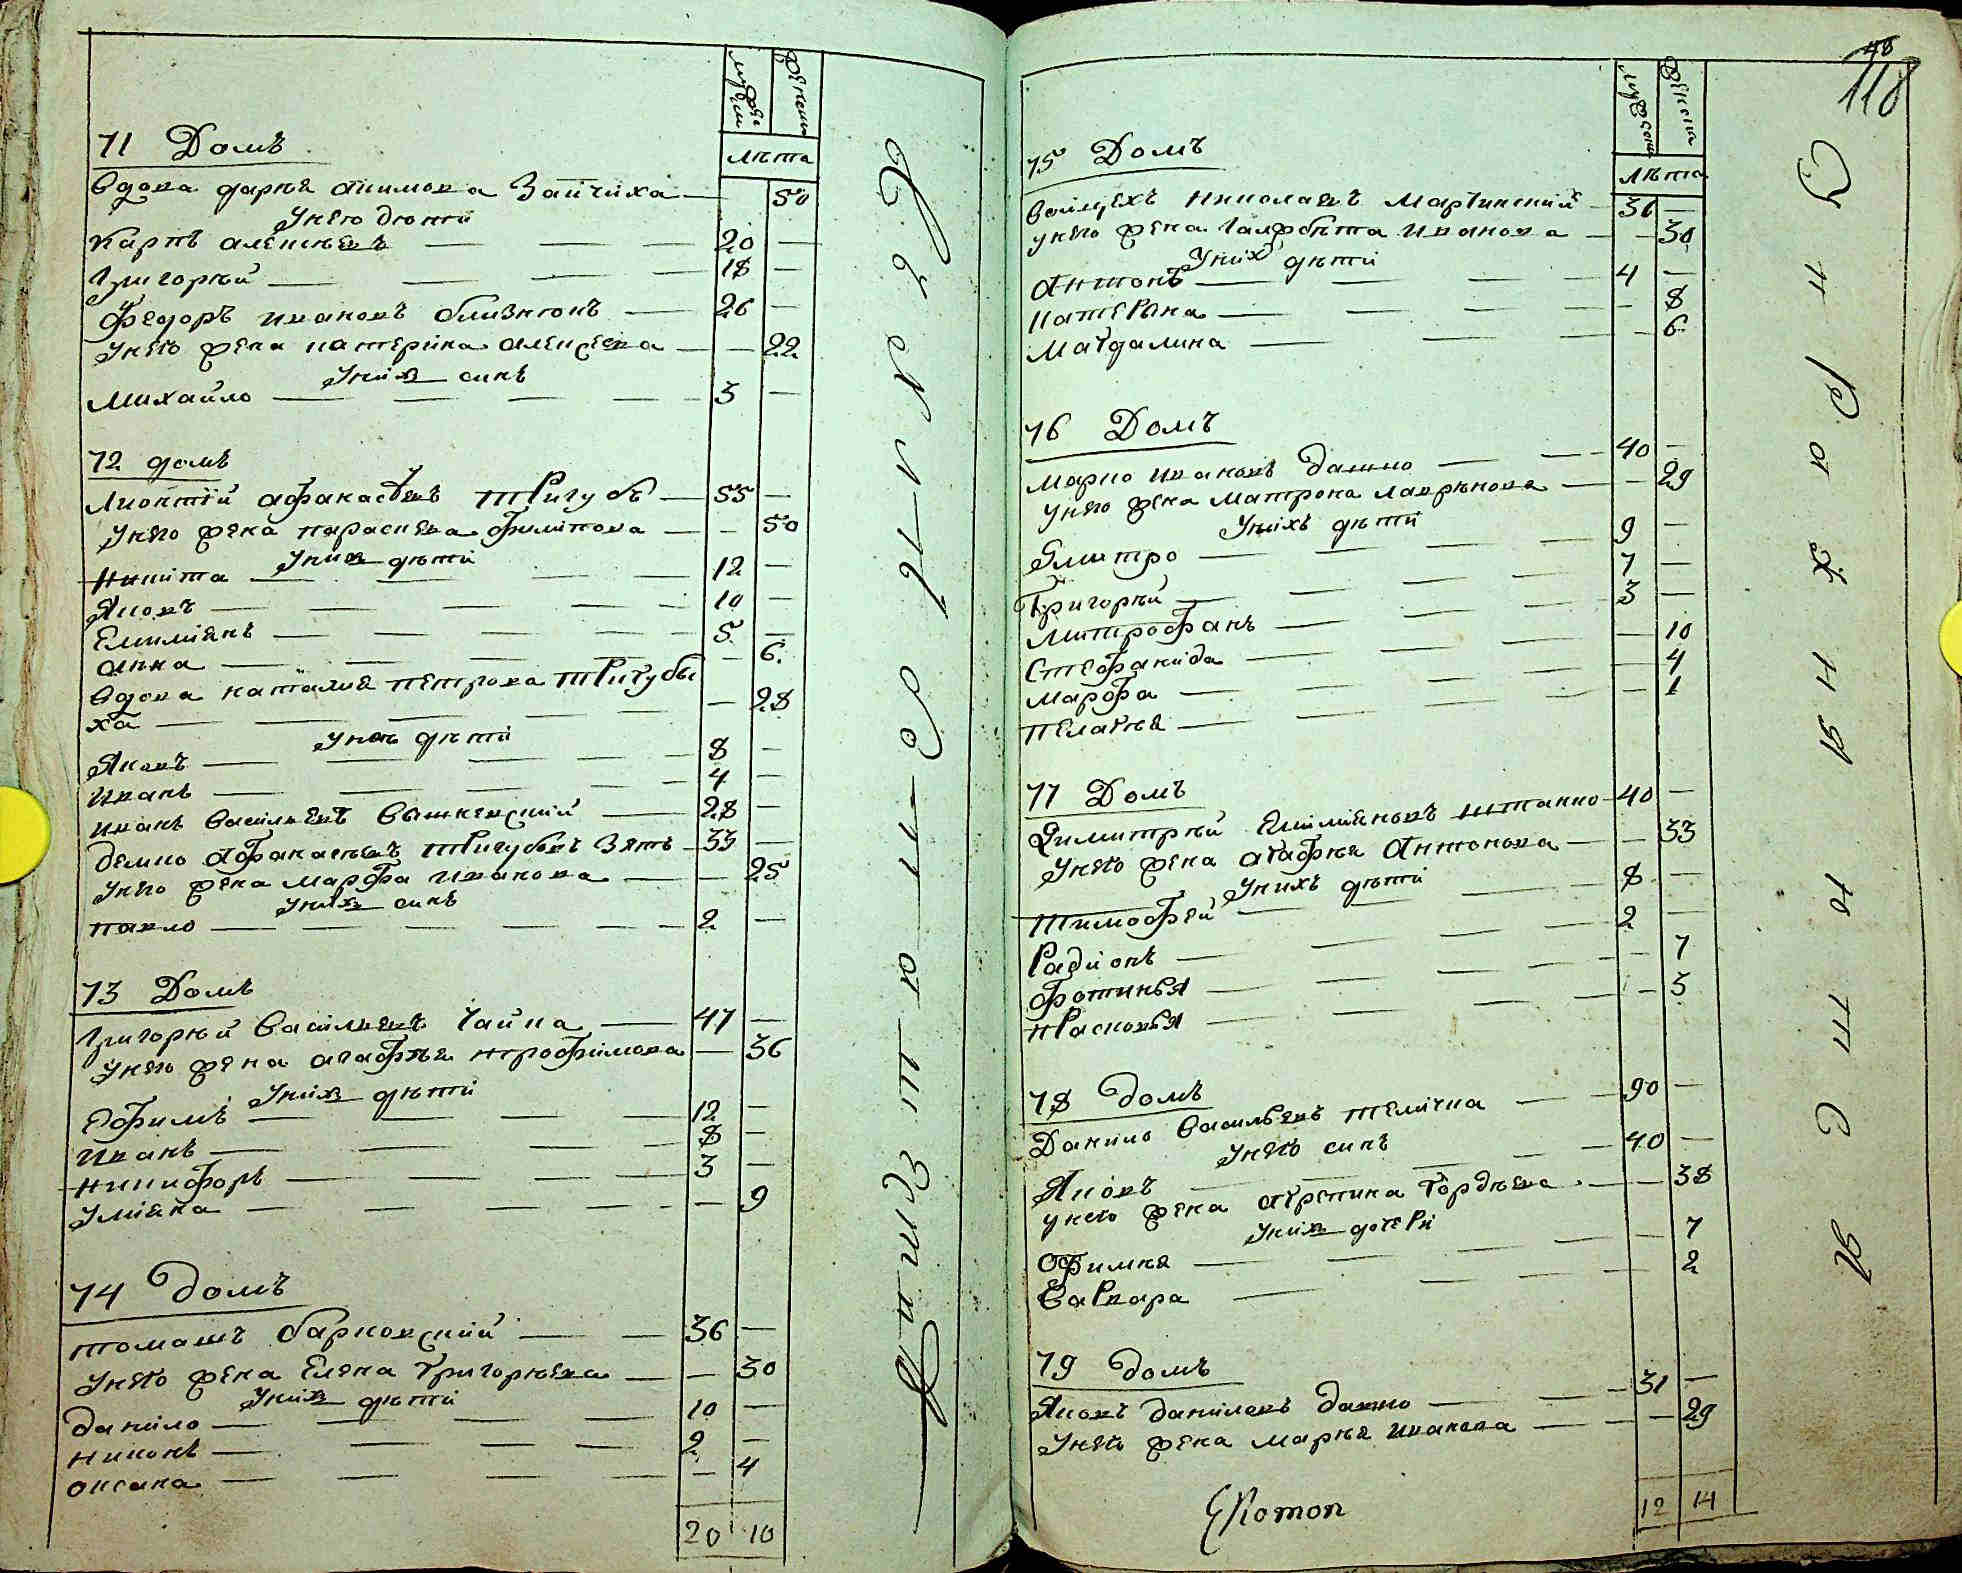 мужеска
женска
лѣта
71 Домъ
Вдова дария акимова Зайчиха 50
Унею дюти
Карпъ алексѣевъ 20
Григорѣй 18
Федоръ ивановъ близнюкъ 26
Унего жена катерина алексѣева 22
Уних синъ
Михайло 3
72 домъ
Лионтій афанасіевъ тригубъ 55
Унего жена параскева филипова 50
Уних дѣти
Никита 12
Яковъ 10
Емиліянъ 5
анна 6
Вдова наталия петрова тригубы
ха 28
Унеи дѣти
Яковъ 8
Иванъ 4
Иванъ Василиевъ Вышневский 28
демко Афанасьевъ тригубовъ Зять 33
Унего жена марфа иванова 25
Уних синъ
павло 2
73 Домъ
Григорѣй Василиевъ Чайка 47
Унего жена агафия трофимова 36
Уних дѣти
Ефимъ 12
Иванъ 8
Никифоръ 3
Улияна 9
74 домъ
томашъ барковский 36
Унего жена Елена Григорѣева 30
Уних дѣти
данило 10
Никонъ 2
оксана 4
20 10
118
мужеска
женска
лѣта
75 Домъ
Войцехъ николаевъ мартинский 36
Унего жена иванова 30
Уних дѣти
Антонъ 4
Катерина 8
Магдалина 6
76 Домъ
марко ивановъ дашко 40
Унего жена матрона лаврѣнова 29
Унихъ дѣти
Дмитро 9
Григорѣй 7
Митрофанъ 3
Стефанида 10
марфа 4
пелагия 1
77 Домъ
Димитрѣй Емилияновъ штанко 40
Унего жена агафия Антонова 33
Унихъ дѣти
тимофей 8
Радионъ 2
фотинья 7
прасковья 3
78 домъ
Данило Васильевъ теличка 90
Унего синъ
Яковъ 40
Унего жена агрепина Гордѣева 38
Уних дочери
Офимия 7
Варвара 2
79 домъ
Яковъ даниловъ дашко 31
Унего жена мария иванова 29
12 14